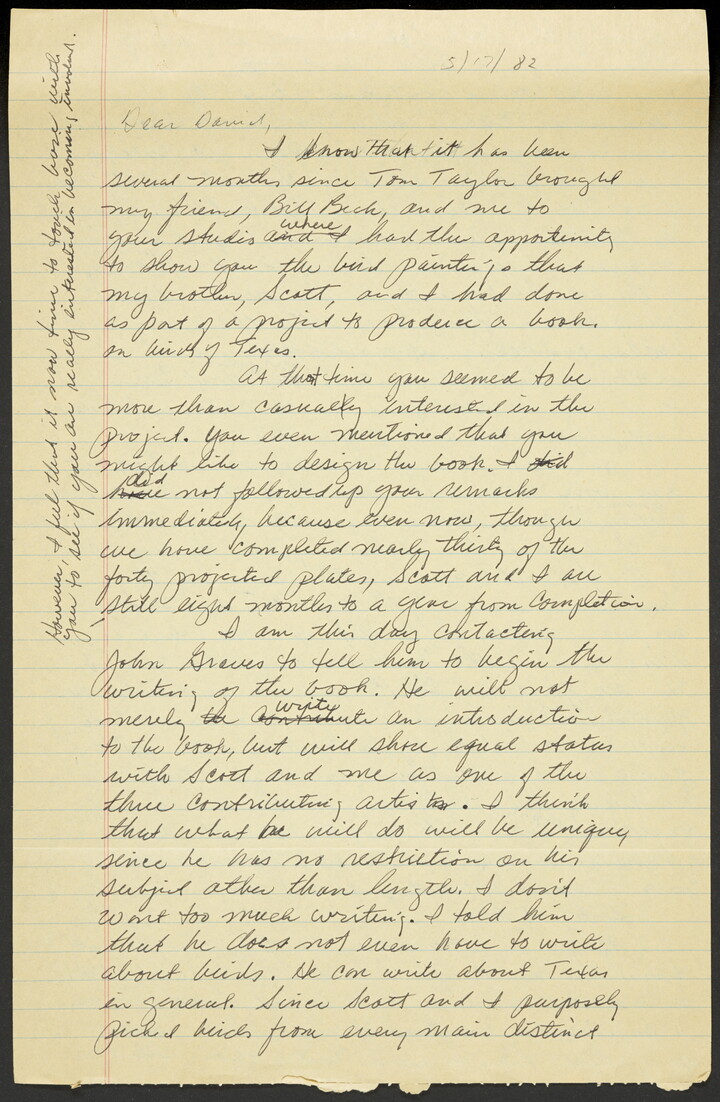 5/17/82
Dear David,
I know that it has been
several months since Tom Taylor brought
my friend, Bill Beck, and me to
your studio and I where had the opportunity
to show you the bird paintings that
my brother, Scott, and I had done
as part of a project to produce a book.
on birds of Texas.
At that time you seemed to be
more than casually interested in the
project. You even mentioned that you
might like to design the book. I did
have did not followed up your remarks
immediately, because even now, though
we have completed nearly thirty of the
forty projected plates, Scott and I are
still eight months to a year from completion.
However, I feel that it is now time to touch base with
you to see if you are really interested in becoming involved.
I am this day contacting
John Graves to tell him to begin the
writing of the book. He will not
merely be contribute write an introduction
to the book, but will share equal status
with Scott and me as one of the
three contributing artists. I think
that what he will do will be unique
since he has no restriction on his
subject other than length. I don't
want too much writing. I told him
that he does not even have to write
about birds. He can write about Texas
in general. Since Scott and I purposely
picked birds from every main distinct